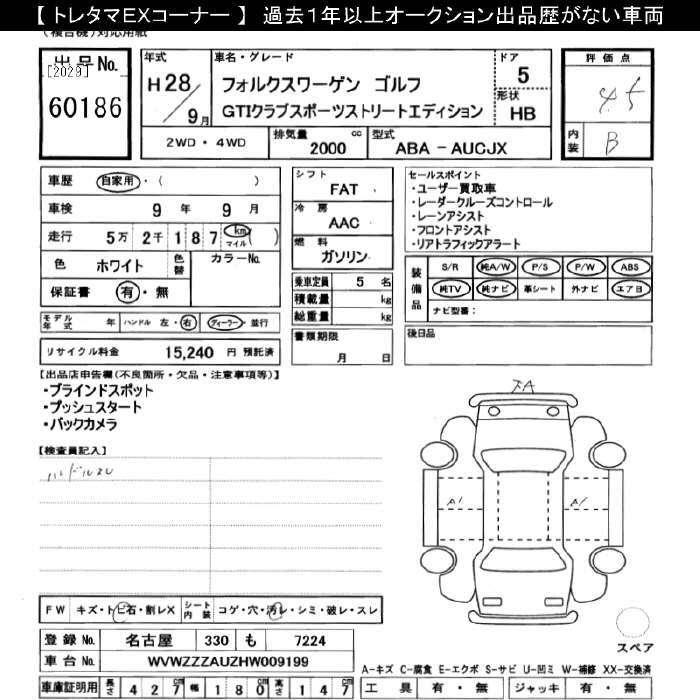 【 トレタマEXコーナー 】 過去１年以上オークション出品歴がない車両
(複合機)対応用紙
出品No.
[2029]
60186
年式
H28/9月
車名・グレード
フォルクスワーゲン ゴルフ
GTIクラブスポーツストリートエディション
ドア
5
形状
HB
2WD・4WD
排気量
2000 cc
型式
ABA - AUCJX
評価点
4.5
内装
B
車歴 自家用・( )
車検 9年 9月
走行 5万2千187 km マイル ( )
色 ホワイト 色替 カラーNo.
保証書 有・無
シフト
FAT
冷房
AAC
燃料
ガソリン
乗車定員 5 名
積載量 kg
総重量 kg
セールスポイント
・ユーザー買取車
・レーダークルーズコントロール
・レーンアシスト
・フロントアシスト
・リアトラフィックアラート
装備品
S/R 純A/W P/S P/W ABS
純TV 純ナビ 革シート 外ナビ エアB
ナビ型番：
モデル年式 年 ハンドル 左・右 ディーラー・並行
リサイクル料金 15,240 円 預託済
書類期限
月 日
後日品
【出品店申告欄(不良箇所・欠品・注意事項等)】
・ブラインドスポット
・プッシュスタート
・バックカメラ
【検査員記入】
ハンドルスレ
A1
A1
スペア
FW キズ・トビ石・割レX シート内装 コゲ・穴・汚レ・シミ・破レ・スレ
登録No. 名古屋 330 も 7224
車台No. WVWZZZAUZHW009199
A-キズ C-腐食 E-エクボ S-サビ U-凹ミ W-補修 XX-交換済
車庫証明用 長さ 427cm 幅 180cm 高さ 147cm
工具 有・無 ジャッキ 有・無